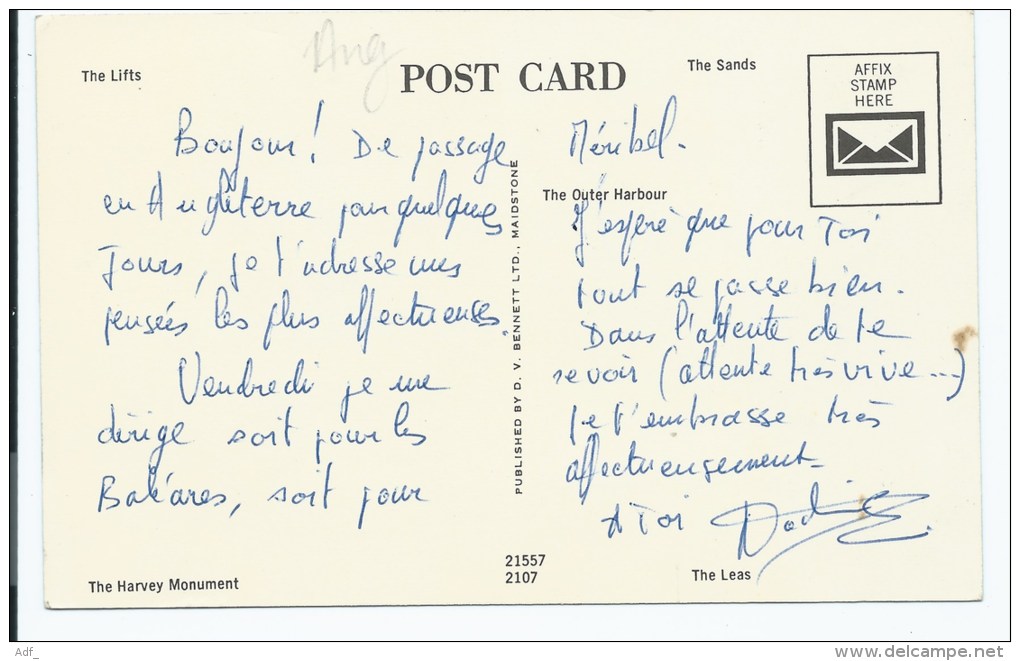 Ang
The Lifts
POST CARD
The Sands
AFFIX
STAMP
HERE
Bonjour! De passage
en Angleterre pour quelques
Jours, je t'adresse mes
pensées les plus affectueuses.
Vendredi je me
dirige soit pour les
Baléares, soit pour
The Harvey Monument
PUBLISHED BY D. V. BENNETT LTD., MAIDSTONE
21557
2107
Méribel.
The Outer Harbour
J'espère que pour Toi
tout se passe bien.
Dans l'attente de te
revoir (attente très vive...)
Je t'embrasse très
affectueusement_
A Toi
The Leas
Adf_
www.delcampe.net